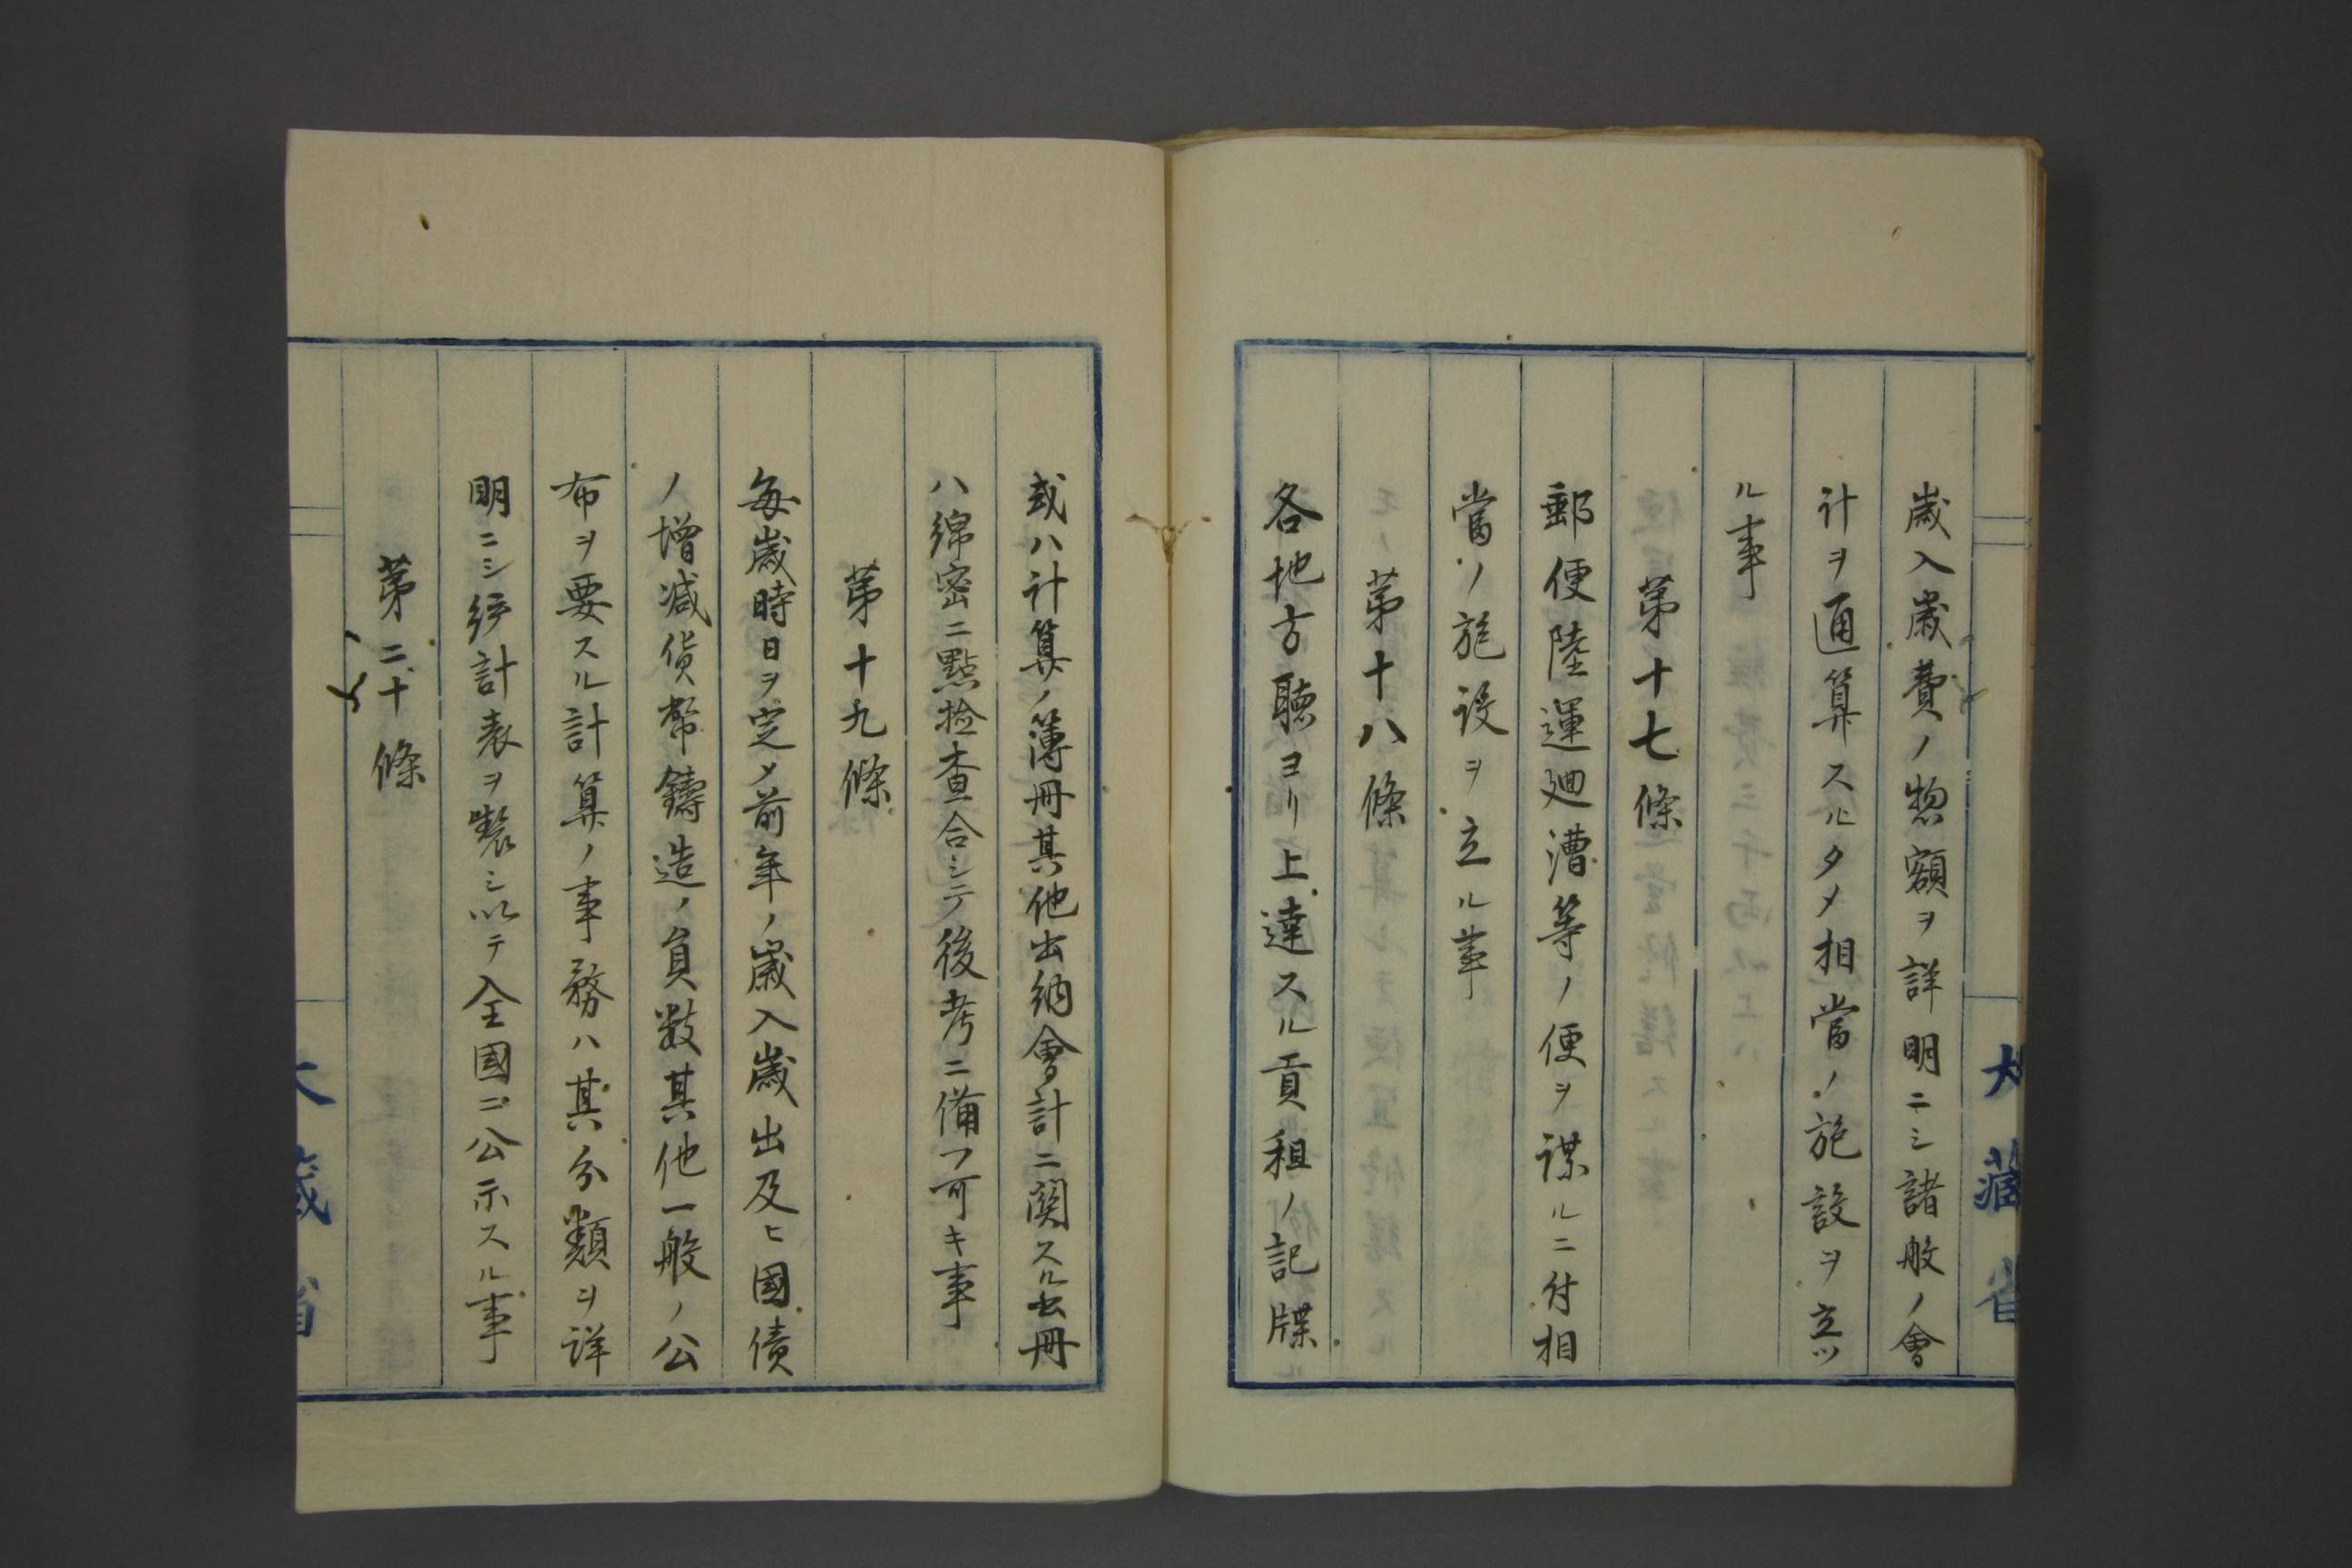 歳入歳費ノ惣額ヲ詳明ニシ諸般ノ會
計ヲ通算スルタメ相當ノ施設ヲ立ツ
ル事
第十七條
郵便陸運廻漕等ノ便ヲ謀ルニ付相
當ノ施設ヲ立ル事
第十八條
各地方聴ヨリ上達スル貢租ノ記牒
大藏省
或ハ計算ノ簿冊其他出納會計ニ関スル去冊
ハ綿密ニ點撿査合シテ後考ニ備フ可キ事
第十九條
毎歳時日ヲ定メ前年ノ歳入歳出及ヒ國債
ノ増減貨幣鑄造ノ負数其他一般ノ公
布ヲ要スル計算ノ事務ハ其分類ヲ詳
明ニシ統計表ヲ製シ以テ全國ニ公示スル事
第二十條
大藏省